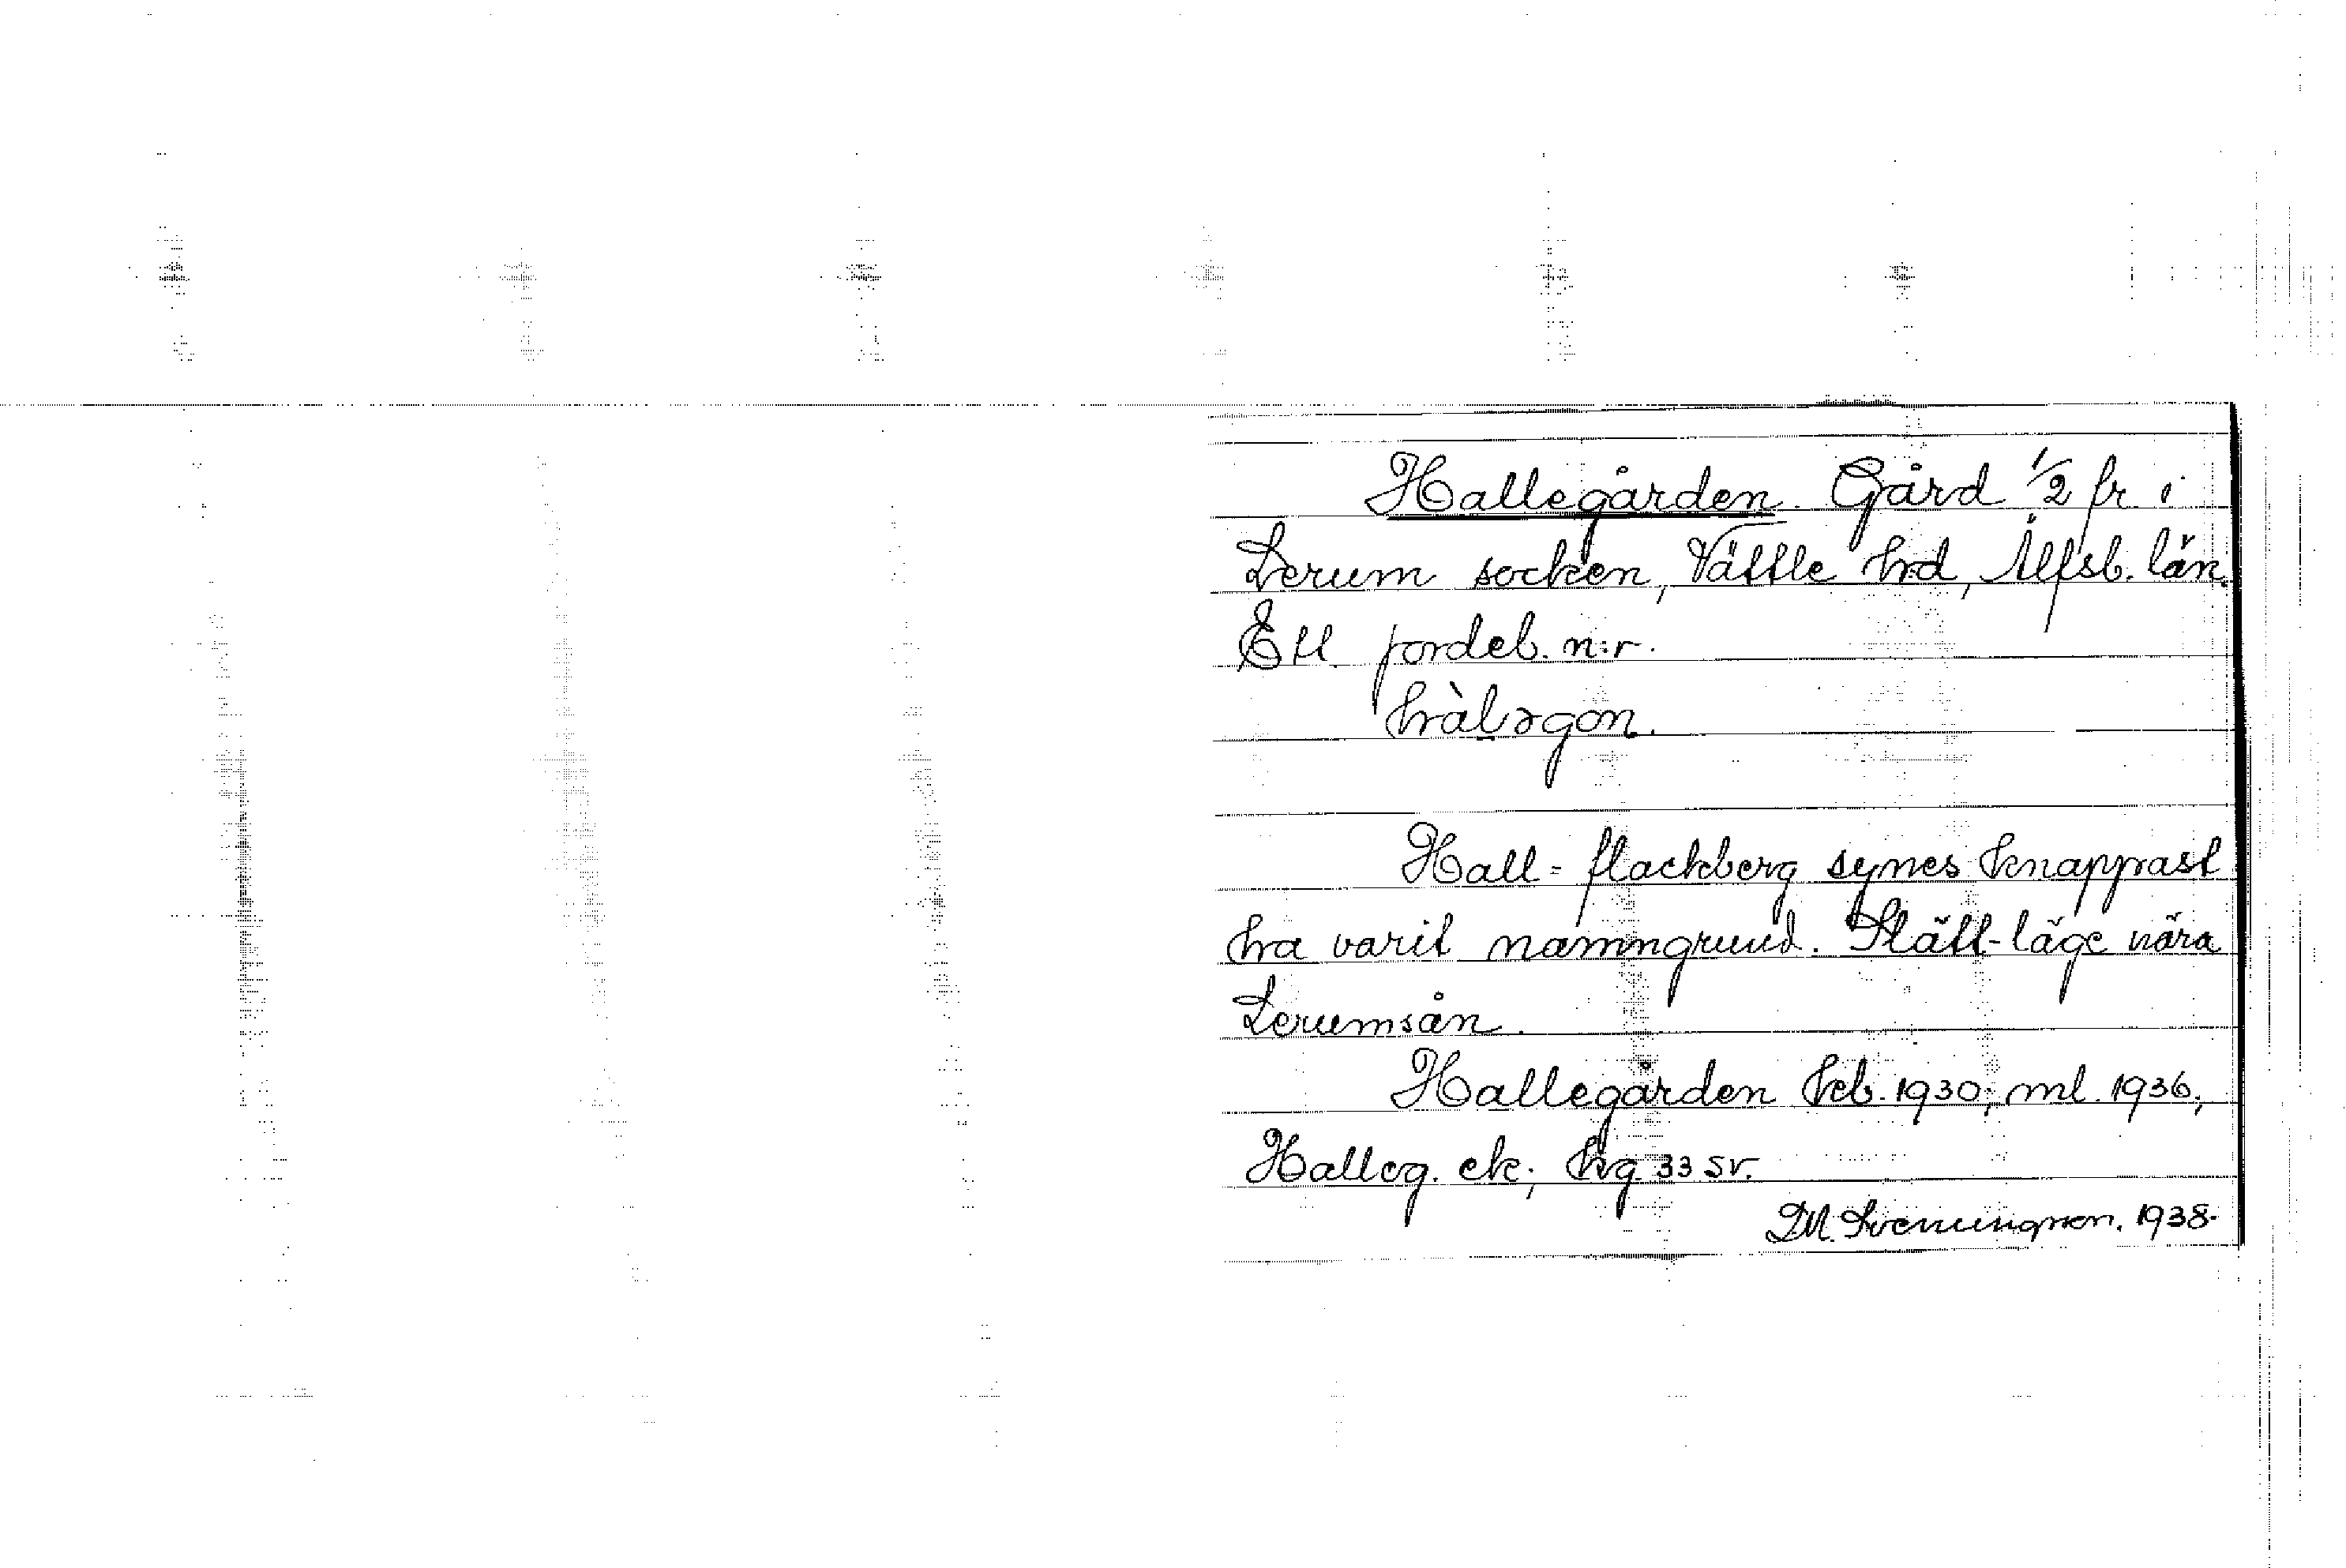 Hallegården. Gård 1/2 fr i
Lerum socken, Vättle hd, Älfsb. län.
Ett jordeb. n:r.
hàləgon.
Hall = flackberg synes knappast
ha varit namngrund. Slätt-läge nära
Lerumsån.
Hallegården keb. 1930; ml. 1936;
Halleg. ek; hvg 33 sv.
D.M. Svenungsson. 1938.